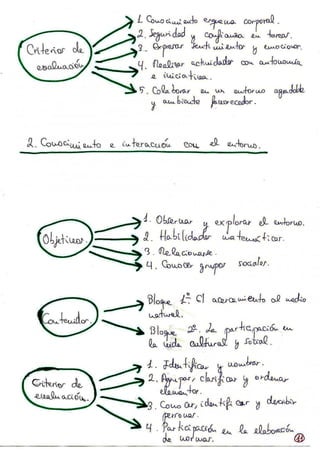 Criterios de
evaluación
1. Conocimiento esquema corporal.
2. Seguridad y confianza en tareas.
3. Expresar sentimientos y emociones.
4. Realizar actividades con autonomía
e iniciativa.
5. Colaborar en un entorno agradable
y ambiente favorecedor.
2. Conocimiento e interacción con el entorno.
Objetivos.
1. Observar y explorar el entorno.
2. Habilidades matemáticas.
3. Relacionarse.
4. Conocer grupos sociales.
Contenidos.
Bloque 1º. El acercamiento al medio
natural.
Bloque 2º. La participación en
la vida cultural y social.
Criterios de
evaluación.
1. Identificar y nombrar.
2. Agrupar, clasificar y ordenar
elementos.
3. Conocer, identificar y describir
personas.
4. Participación en la elaboración
de normas.